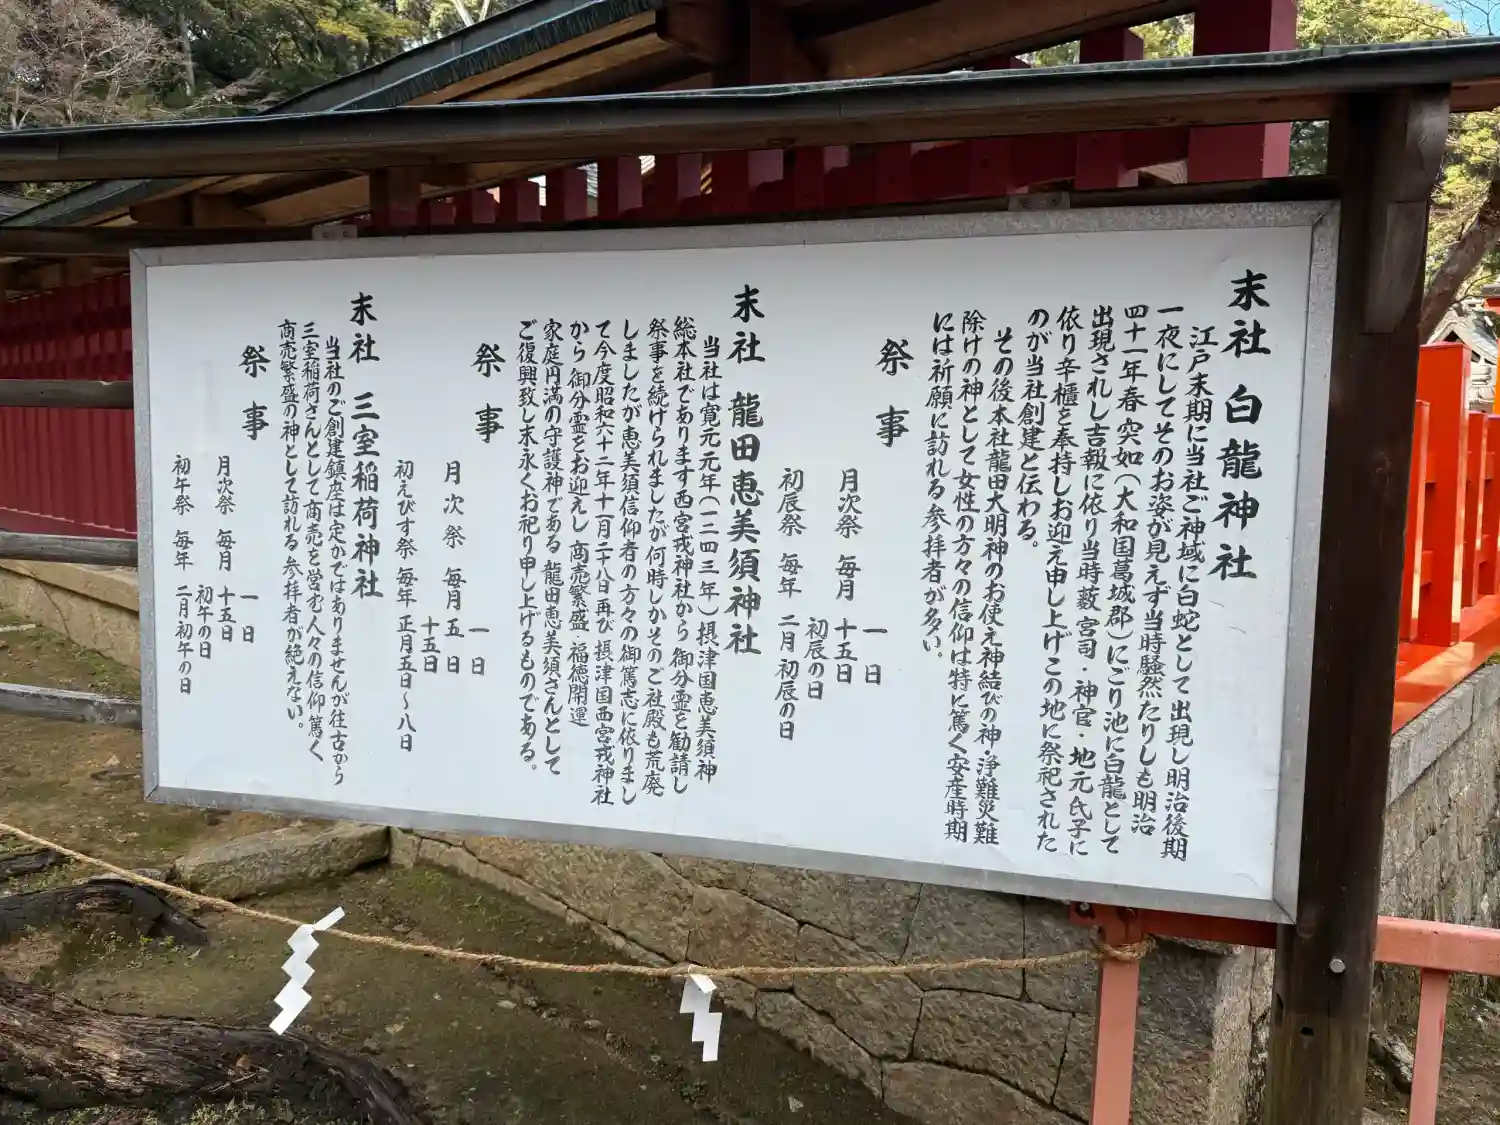 末社 白龍神社
江戸末期に当社ご神域に白蛇として出現し明治後期
一夜にしてそのお姿が見えず当時騒然たりしも明治
四十一年春突如(大和国葛城郡)にごり池に白龍として
出現されし吉報に依り当時藪宮司・神官・地元氏子に
依り辛櫃を奉持しお迎え申し上げこの地に祭祀された
のが当社創建と伝わる。
その後本社龍田大明神のお使え神結びの神・浄難災難
除けの神として女性の方々の信仰は特に篤く安産時期
には祈願に訪れる参拝者が多い。
祭事
一日
月次祭 毎月 十五日
初辰の日
初辰祭 毎年 二月初辰の日
末社 龍田恵美須神社
当社は寛元元年(一二四三年)摂津国恵美須神
総本社であります西宮戎神社から御分霊を勧請し
祭事を続けられましたが何時しかそのご社殿も荒廃
しましたが恵美須信仰者の方々の御篤志に依りまし
て今度昭和六十二年十一月二十八日再び摂津国西宮戎神社
から御分霊をお迎えし商売繁盛・福徳開運
家庭円満の守護神である龍田恵美須さんとして
ご復興致し末永くお祀り申し上げるものである。
祭事
一日
月次祭 毎月 五日
十五日
初えびす祭 毎年 正月五日~八日
末社 三室稲荷神社
当社のご創建鎮座は定かではありませんが往古から
三室稲荷さんとして商売を営む人々の信仰篤く
商売繁盛の神として訪れる参拝者が絶えない。
祭事
一日
月次祭 毎月 十五日
初午の日
初午祭 毎年 二月初午の日